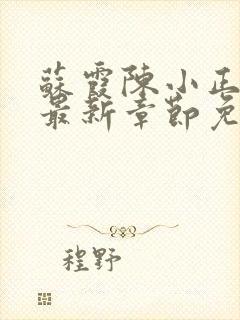 蘇霞陳小正
最新章節免
程野